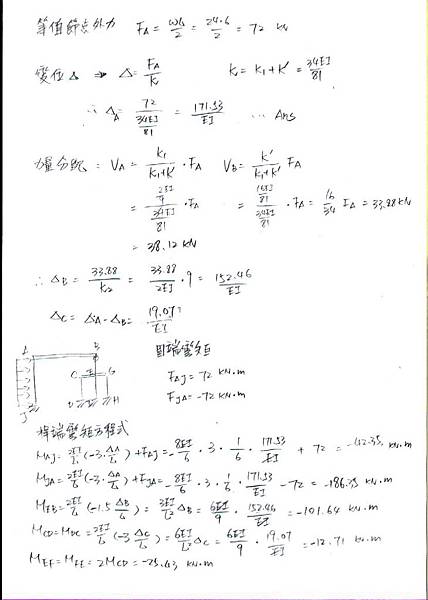 等值節点外力 F_A = ωL/2 = 24·6/2 = 72 kN
變位Δ ⇒ Δ = F_A/K K = K₁+K' = 34EI/81
∴ Δ_A = 72/(34EI/81) = 171.53/EI … Ans
力量分配 = V_A = K₁/(K₁+K') · F_A V_B = K'/(K₁+K') F_A
= (2EI/9)/(34EI/81) · F_A = (16EI/81)/(34EI/81) · F_A = 16/34 F_A = 33.88 kN
= 38.12 kN
∴ Δ_B = 33.88/K₂ = 33.88/2EI · 9 = 152.46/EI
Δ_C = Δ_A - Δ_B = 19.07/EI
固端彎矩
B
C E G
F_AJ = 72 kN·m
D F H
F_JA = -72 kN·m
J
桿端彎矩方程式
M_AJ = 2EI/6 (-3·Δ_A/6) + F_AJ = -8EI/6 · 3 · 1/6 · 171.53/EI + 72 = -42.35 kN·m
M_JA = 2EI/6 (-3·Δ_A/6) + F_JA = -8EI/6 · 3 · 1/6 · 171.53/EI - 72 = -186.35 kN·m
M_EB = 2EI/L (-1.5 Δ_B/L) = 3EI/L² Δ_B = 6EI/9 · 152.46/EI = -101.64 kN·m
M_CD = M_DC = 2EI/L (-3 Δ_C/L) = 6EI/L² Δ_C = 6EI/9 · 19.07/EI = -12.71 kN·m
M_EF = M_FE = 2M_CD = -25.43 kN·m